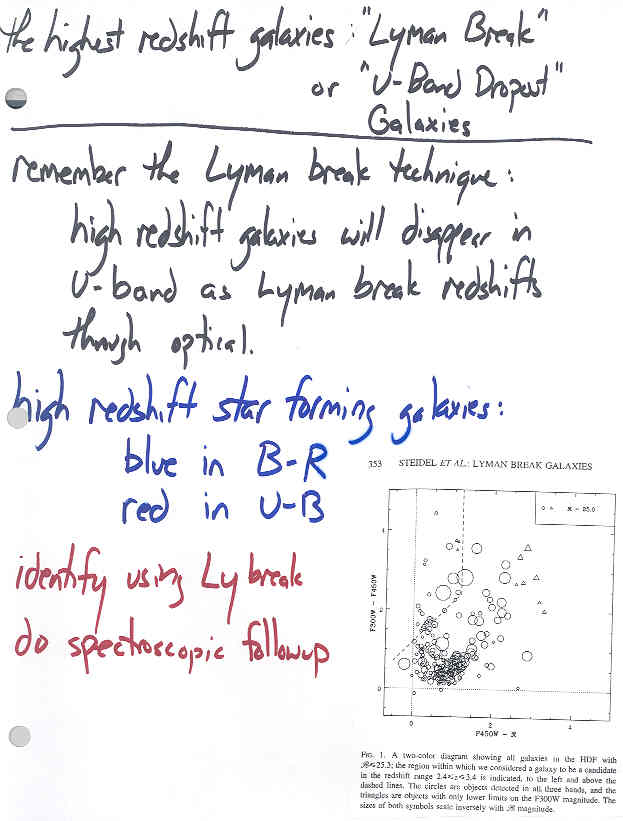 the highest redshift galaxies: "Lyman Break"
or "U-Band Dropout"
Galaxies
remember the Lyman break technique:
high redshift galaxies will disappear in
U-band as Lyman break redshifts
through optical.
high redshift star forming galaxies:
blue in B-R
red in U-B
identify using Ly break
do spectroscopic followup
353 STEIDEL ET AL.: LYMAN BREAK GALAXIES
= 25.0
4
2
0
F300W - F450W
0 2 4
F450W - ℛ
FIG. 1. A two-color diagram showing all galaxies in the HDF with
ℛ≤25.3; the region within which we considered a galaxy to be a candidate
in the redshift range 2.4≤z≤3.4 is indicated, to the left and above the
dashed lines. The circles are objects detected in all three bands, and the
triangles are objects with only lower limits on the F300W magnitude. The
sizes of both symbols scale inversely with ℛ magnitude.